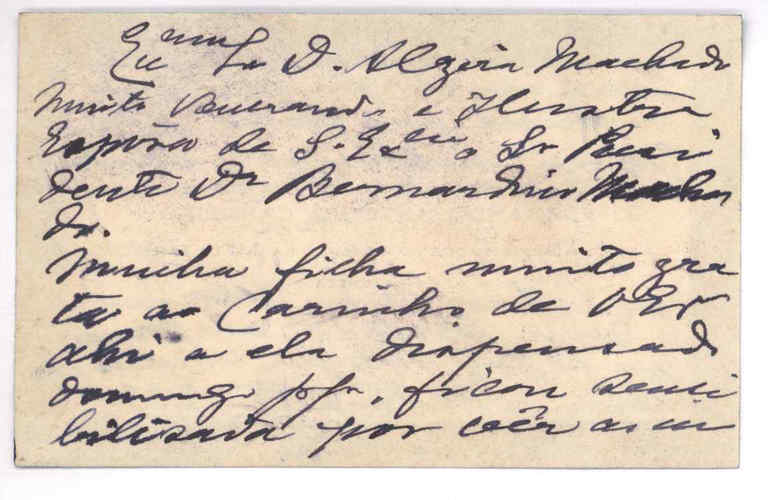 Exma Sra D. Elzira Machado
Muito Veneranda e Ilustre
Espôsa de S. Excia o Sr Presi
dente Dr Bernardino Macha
do.
Minha filha muito gra
ta ao Carinho de V. Exª
ahi a ela dispensado
domingo pp., ficou sensi
bilisada por